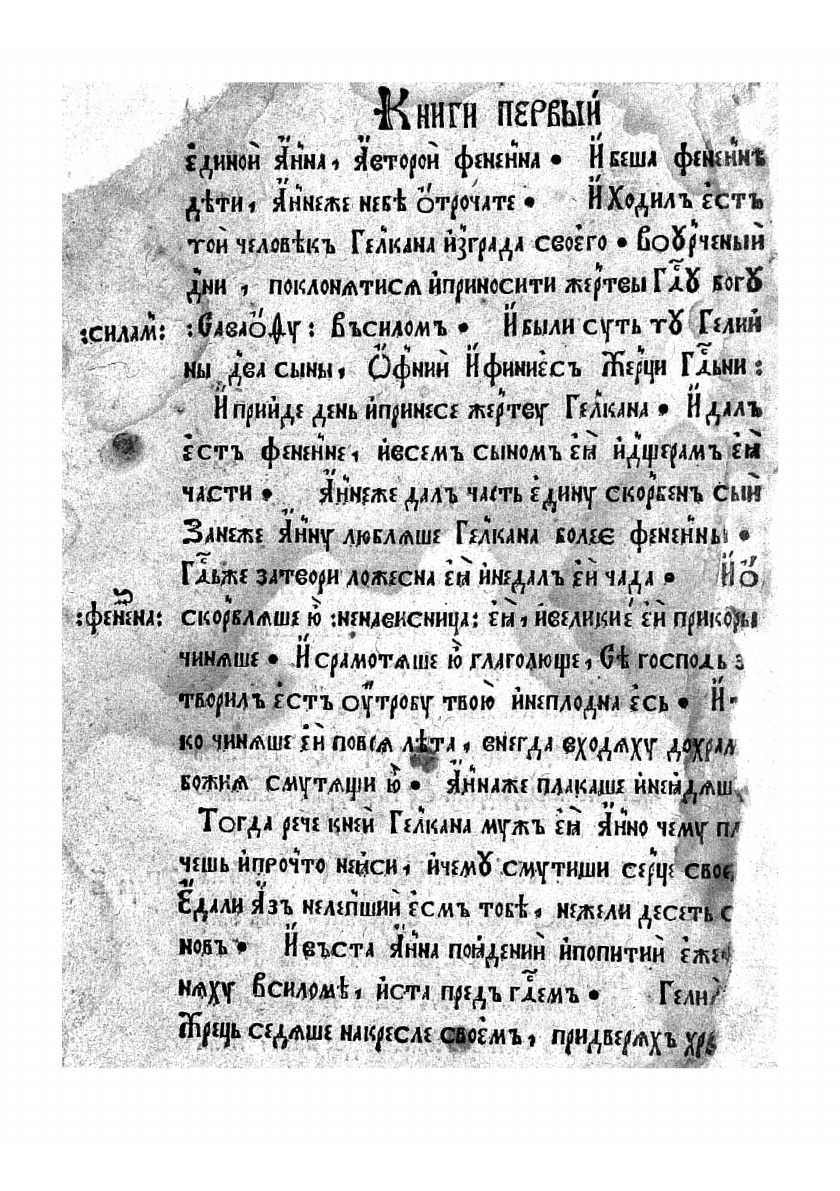 Книги первый
єдиной А҆нна, А҆второй фенен̾на • И҆ беша фенен̾нѣ
дѣти, А҆н̾неже небѣ Ѻтрочате • И҆ ходилъ єстъ
той человѣкъ Гел̾кана и҆зграда своего • Воурченый
дни , поклонѧтисѧ и҆приносити жер̾твы Гдⷭ҇ꙋ богꙋ
:силам: :Саваѻѳꙋ: въсиломъ • И҆ были суть тꙋ Гелий
ны два сыны, Ѻѳний И҆ финиєсъ Жерци Гдⷭ҇ьни :
И҆ прийде день и҆принесе жер̾тву Гел̾кана • И҆ далъ
єстъ фенен̾не, и҆всемъ сыномъ єꙗ и҆дщерамъ єꙗ
части • А҆н̾неже далъ часть єдину скорбенъ сый
Занеже А҆н̾ну люблѧше Гел̾кана болеє фенен̾ны •
Гдⷭ҇ьже затвори ложесна єꙗ и҆недалъ єй чада • И҆ѻ
:фенⸯнена: скорблѧше ю҆ :ненависница: єꙗ, и҆великиє єй прикоры
чинѧше • И҆ срамотѧше ю҆ глаголюще, Сѣ господь з
творилъ єстъ оутробу твою и҆неплодна єсь • И҆
ко чинѧше єй повсѧ лѣта, внегда входѧху дохрал
божиꙗ смутѧщи ю҆ • А҆н̾наже плакаше и҆неꙗдѧш
Тогда рече кней Гел̾кана мужъ єꙗ А҆нно чему пл
чешь и҆прочто неꙗси, и҆чемꙋ смутиши серце своє
Єдали ꙗзъ нелепший єсмъ тобѣ, нежели десеть с
новъ • И҆въста А҆нна поꙗдений и҆попитий єже
нѧху всиломѣ, и҆ста предъ гдⷭ҇емъ • Гели
Жрець седѧше накресле своємъ, придверѧхъ хра